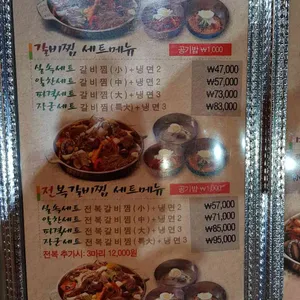 갈비찜 세트메뉴 공기밥 ₩1,000
실속세트 갈비찜(小)+냉면2 ₩47,000
알찬세트 갈비찜(中)+냉면2 ₩57,000
파격세트 갈비찜(大)+냉면3 ₩73,000
장군세트 갈비찜(특大)+냉면3 ₩83,000
전복갈비찜 세트메뉴 공기밥 ₩1,000
실속세트 전복갈비찜(小)+냉면2 ₩57,000
알찬세트 전복갈비찜(中)+냉면2 ₩71,000
파격세트 전복갈비찜(大)+냉면3 ₩85,000
장군세트 전복갈비찜(특大)+냉면3 ₩95,000
전복 추가시: 3마리 12,000원